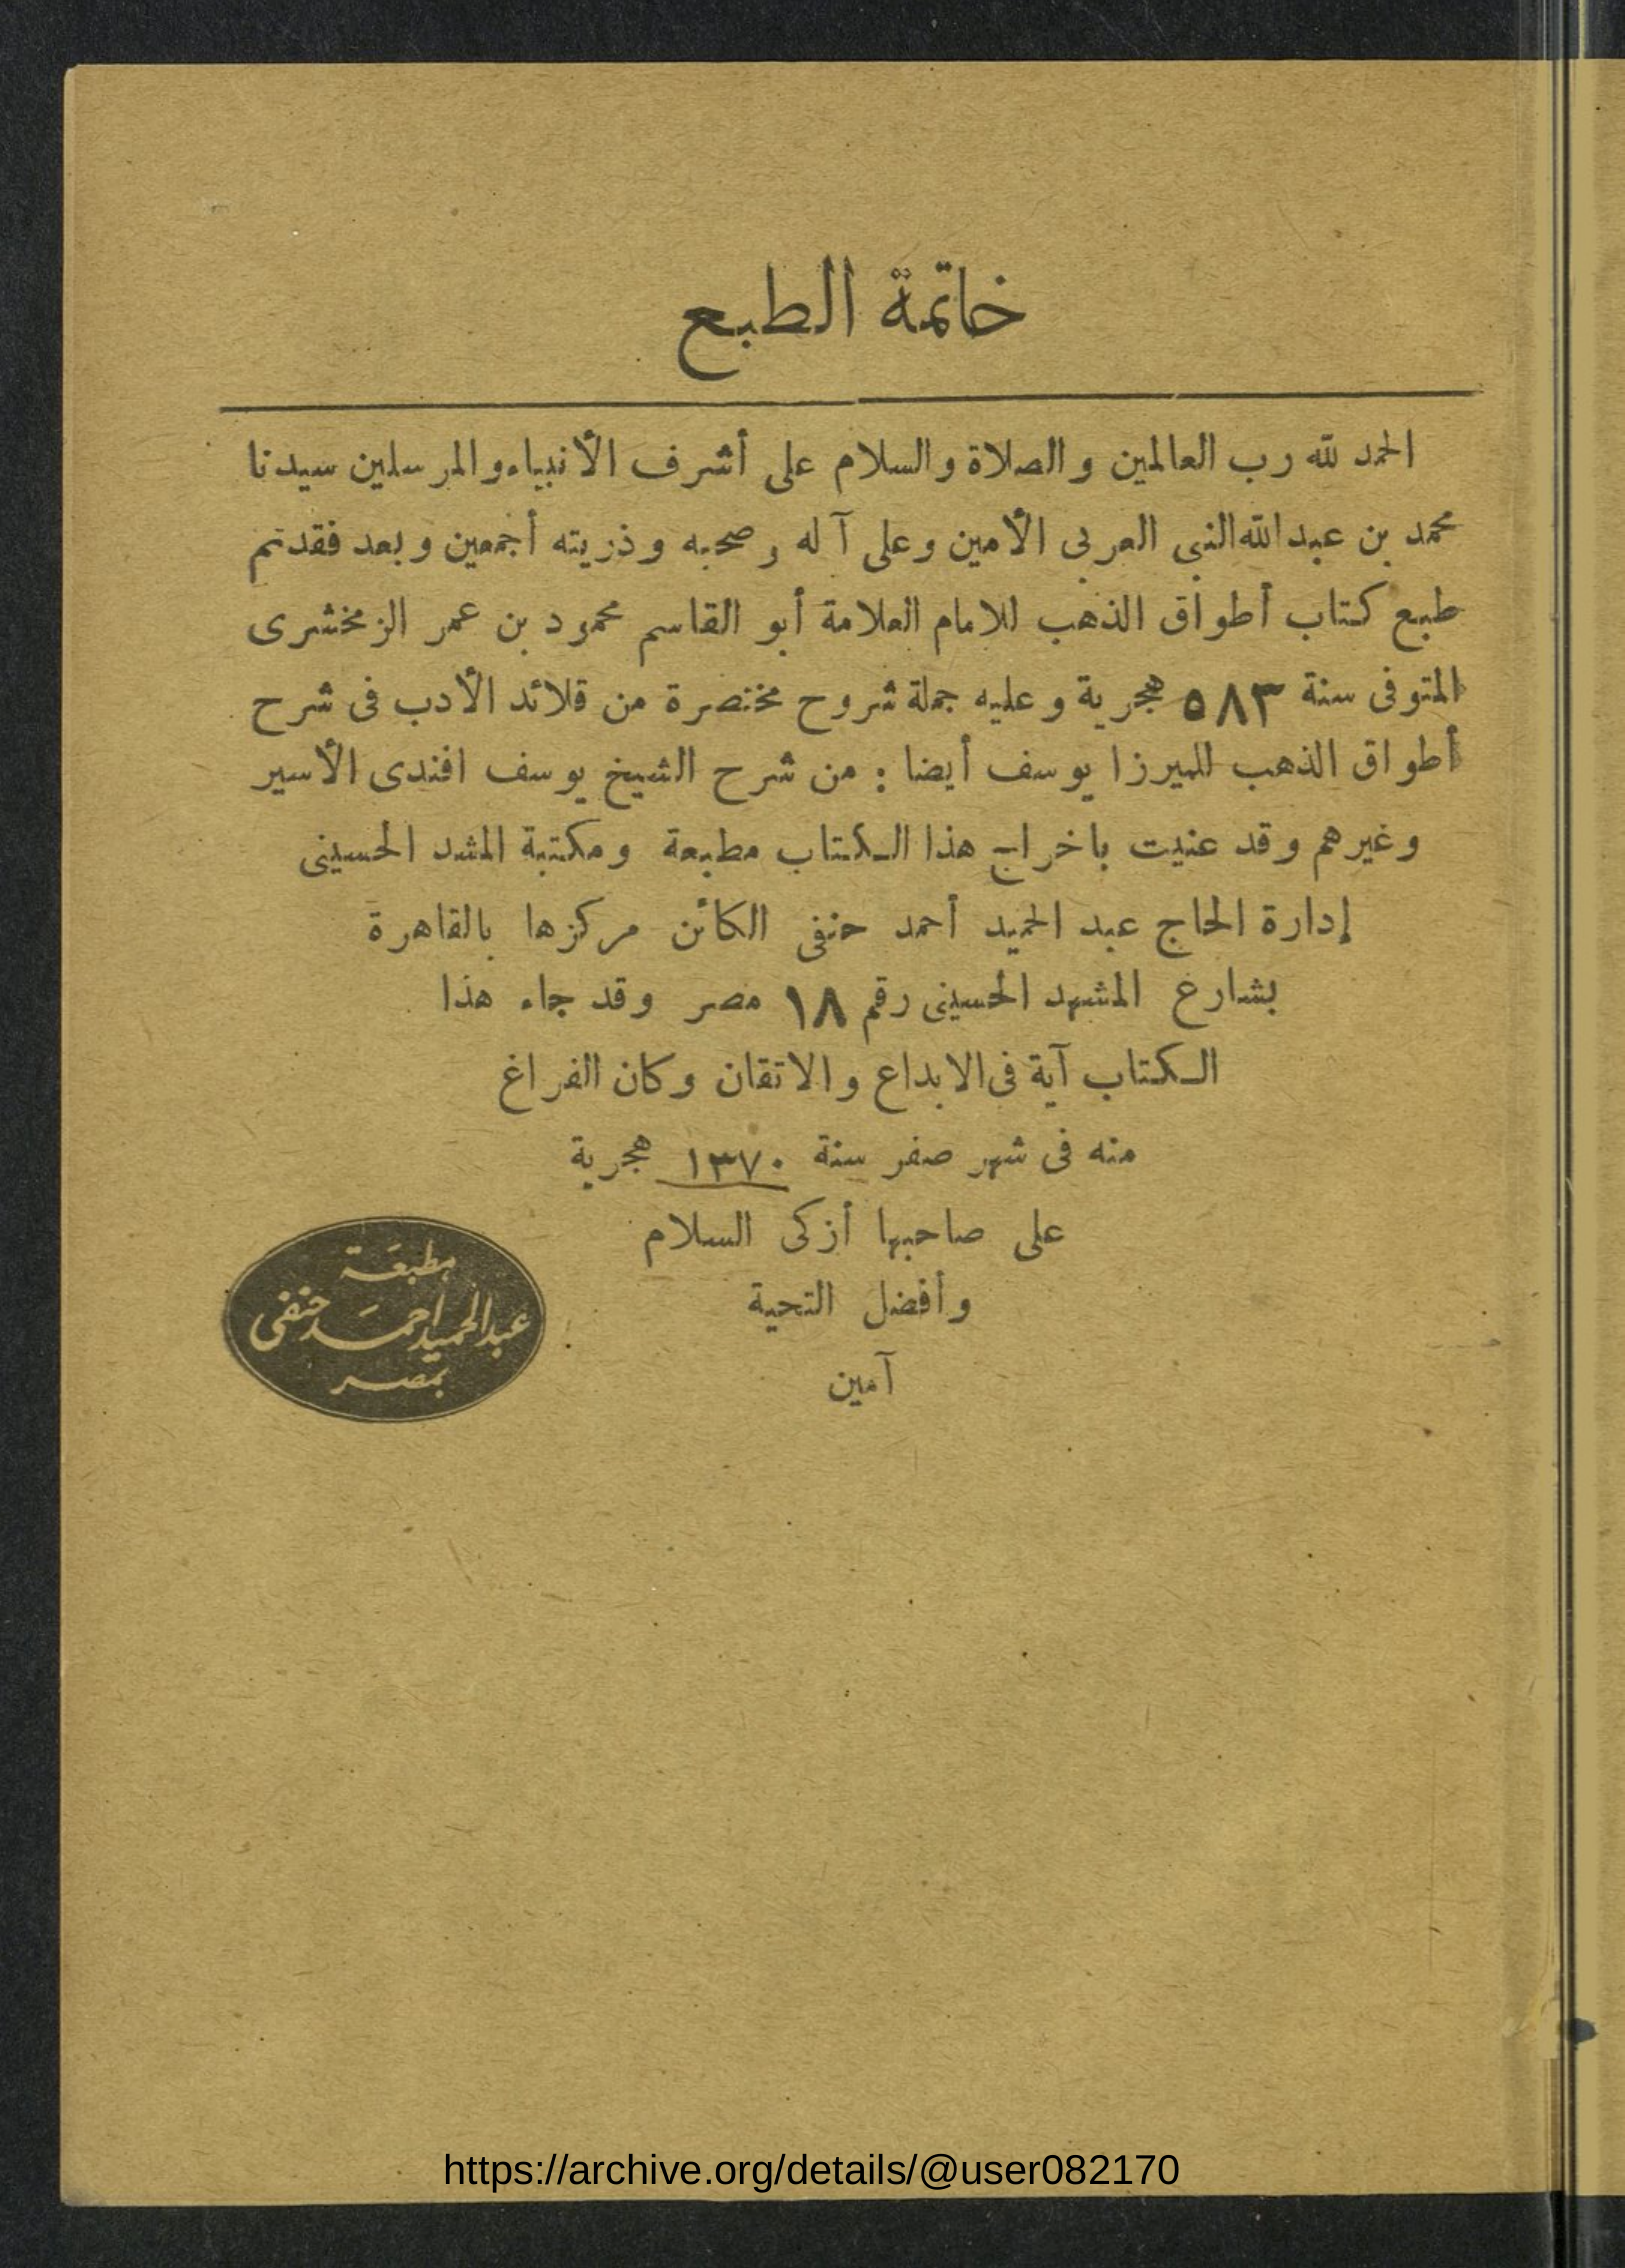 خاتمة الطبع
الحمد لله رب العالمين والصلاة والسلام على أشرف الأنبياء والمرسلين سيدنا
محمد بن عبد الله النبى العربى الأمين وعلى آله وصحبه وذريته أجمعين وبعد فقد تم
طبع كتاب أطواق الذهب للامام العلامة أبو القاسم محمود بن عمر الزمخشرى
المتوفى سنة ٥٨٣ هجرية وعليه جملة شروح مختصرة من قلائد الأدب فى شرح
أطواق الذهب للميرزا يوسف أيضا : من شرح الشيخ يوسف افندى الأسير
وغيرهم وقد عنيت باخراج هذا الكتاب مطبعة ومكتبة المشد الحسينى
إدارة الحاج عبد الحميد أحمد حنفى الكائن مركزها بالقاهرة
بشارع المشهد الحسينى رقم ١٨ مصر وقد جاء هذا
الكتاب آية فى الابداع والاتقان وكان الفراغ
منه فى شهر صفر سنة ١٣٧٠ هجرية
على صاحبها أزكى السلام
وأفضل التحية
آمين
مطبعَة
عبد الحميد احمَد حنفى
بمصر
https://archive.org/details/@user082170